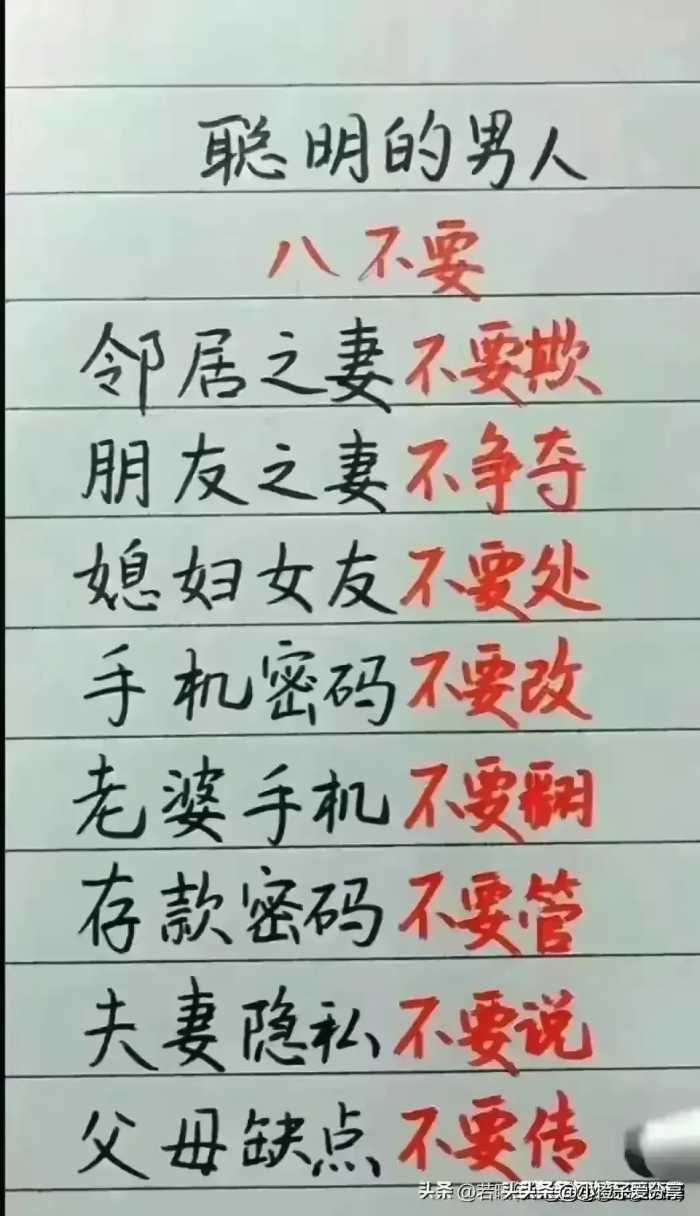 聪明的男人
八不要
邻居之妻不要欺
朋友之妻不争夺
媳妇女友不要处
手机密码不要改
老婆手机不要翻
存款密码不要管
夫妻隐私不要说
父母缺点不要传